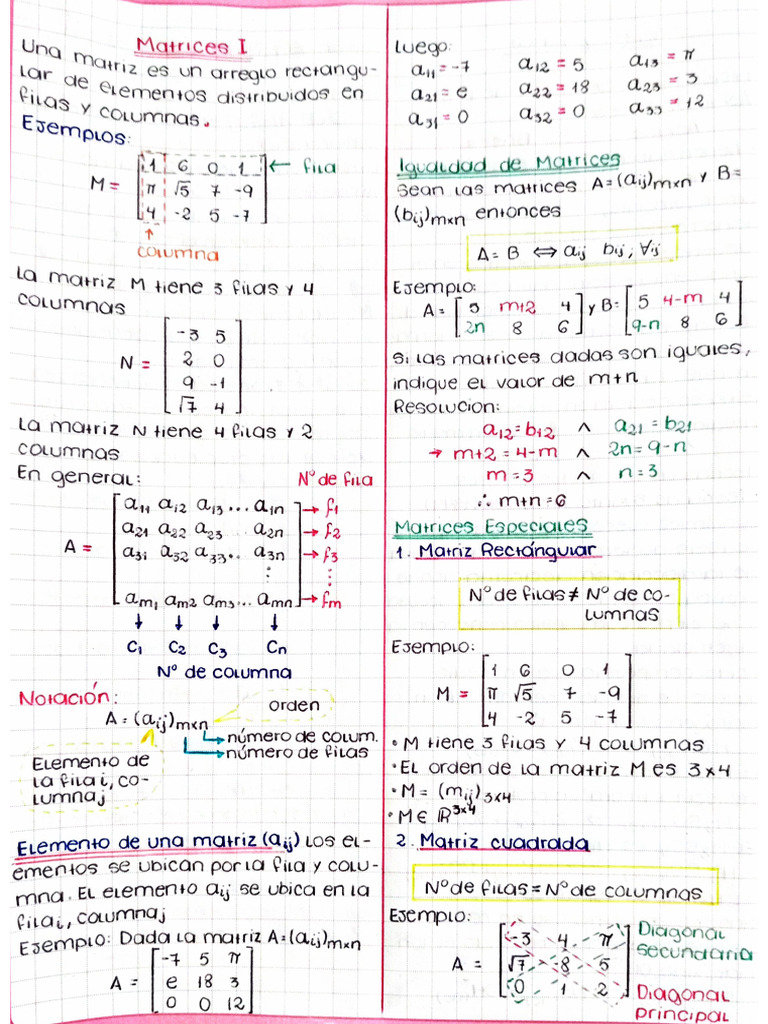 Matrices I
Una matriz es un arreglo rectangu-
lar de elementos distribuidos en
filas y columnas.
Ejemplos:
M = [1 6 0 1] ← fila
[π √5 7 -9]
[4 -2 5 -7]
↑
columna
La matriz M tiene 3 filas y 4
columnas
[-3 5]
N = [2 0]
[9 -1]
[√7 4]
La matriz N tiene 4 filas y 2
columnas
En general: N° de fila
[a11 a12 a13 ... a1n] → f1
[a21 a22 a23 a2n] → f2
A = [a3i a32 a33.. a3n] → f3
⋮ ⋮
[am1 am2 am3... amn] → fm
↓ ↓ ↓ ↓
C1 C2 C3 Cn
N° de columna
Notación:
orden
A = (aij)m×n
número de colum.
número de filas
Elemento de
la fila i, co-
lumna j
Elemento de una matriz (aij) Los el-
ementos se ubican por la fila y colu-
mna. El elemento aij se ubica en la
fila i, columna j
Ejemplo: Dada la matriz A=(aij)m×n
[-7 5 π]
A = [e 18 3]
[0 0 12]
Luego:
a11 = -7 a12 = 5 a13 = π
a21 = e a22 = 18 a23 = 3
a31 = 0 a32 = 0 a33 = 12
Igualdad de Matrices
Sean las matrices A=(aij)m×n y B=
(bij)m×n entonces
A = B ⟺ aij bij; ∀ij
Ejemplo:
A = [5 m+2 4] y B = [5 4-m 4]
[2n 8 6] [9-n 8 6]
Si las matrices dadas son iguales,
indique el valor de m+n
Resolucion:
a12 = b12 ∧ a21 = b21
→ m+2 = 4-m ∧ 2n = 9-n
m = 3 ∧ n = 3
∴ m+n = 6
Matrices Especiales
1. Matriz Rectángular
N° de filas ≠ N° de co-
lumnas
Ejemplo:
[1 6 0 1]
M = [π √5 7 -9]
[4 -2 5 -7]
• M tiene 3 filas y 4 columnas
• El orden de la matriz M es 3×4
• M = (mij)3×4
• M ∈ ℝ3×4
2. Matriz cuadrada
N° de filas = N° de columnas
Ejemplo:
[-3 4 π] Diagonal
secundaria
A = [√7 -8 5]
[0 1 2] Diagonal
principal